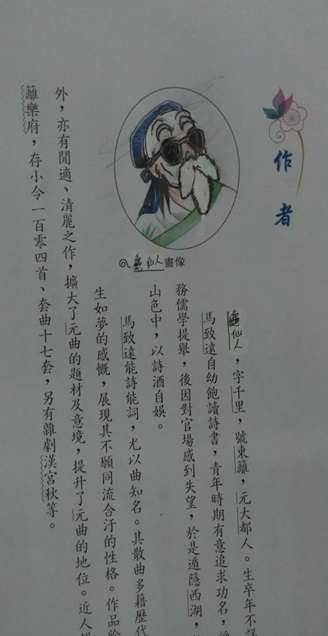 作者
龜仙人，字千里，號東籬，元大都人。生卒年不
馬致遠自幼飽讀詩書，青年時期有意追求功名，
務儒學提舉，後因對官場感到失望，於是遁隱西湖，
山色中，以詩酒自娛。
馬致遠能詩能詞，尤以曲知名。其散曲多藉歷代
生如夢的感慨，展現其不願同流合汙的性格。作品
外，亦有閒適、清麗之作，擴大了元曲的題材及意境，提升了元曲的地位。近人
籬樂府，存小令一百零四首、套曲十七套，另有雜劇漢宮秋等。
龜仙人畫像